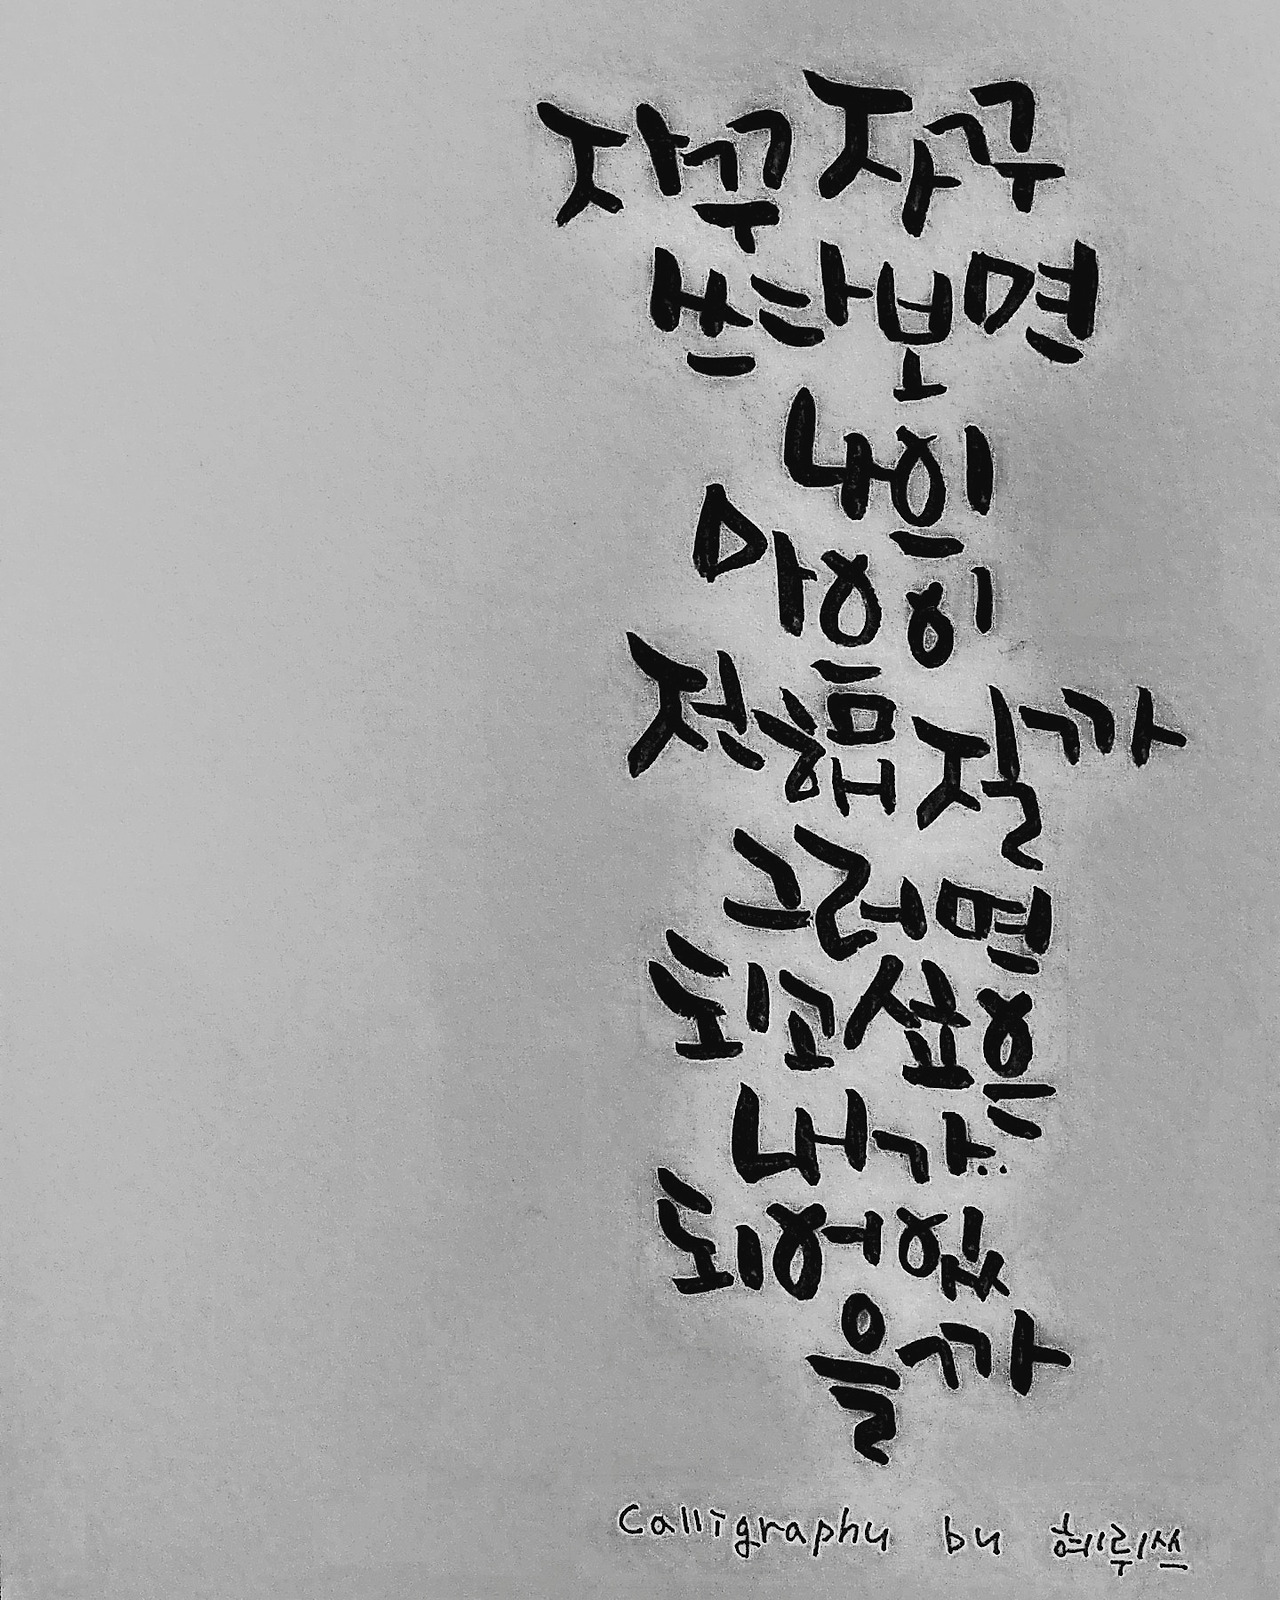 자꾸자꾸
쓰다보면
나의
마음이
전해질까
그러면
되고싶은
내가..
되어있
을까
Calligraphy by 혜뤼쓰